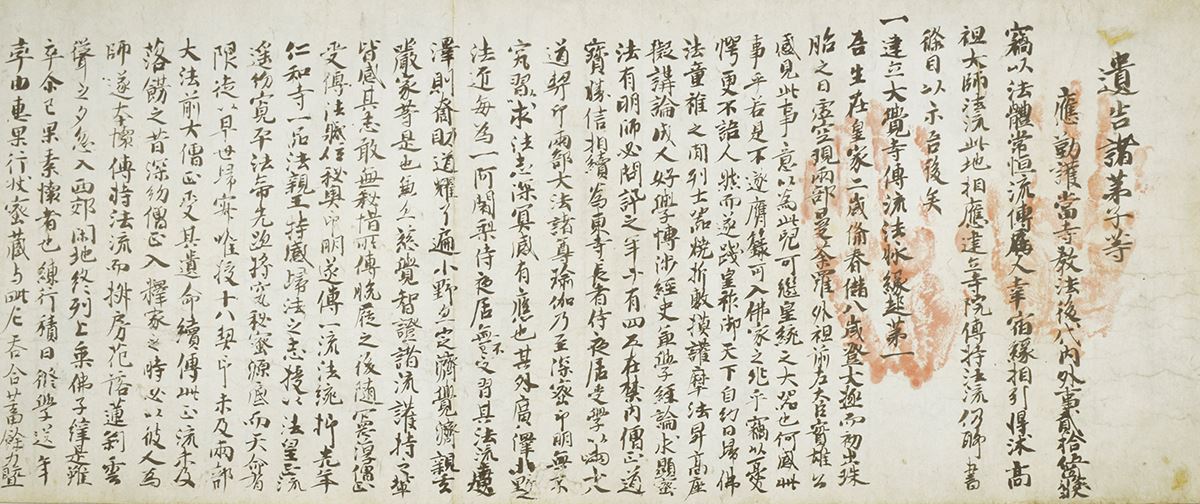 遺告諸弟子等
應勤護當寺教法後代内外事貳拾伍箇條狀
竊以法體常恒流傳属人幸宿縁相引得沐高
祖大師法流此地相應建立寺院傳持法流仍聊書
條目以示吾後矣
一建立大覺寺傳流法脉縁起第一
吾生在皇家二歳備春儲八歳登大極而初出珠
胎之日虚空現兩部曼荼羅外祖前左大臣實雄公
感見此事意以為此兒可継皇統之大器也何感此
事乎若是不遂膺籙可入佛家之兆乎竊以憂
愕更不語人然而遂踐皇祚御天下自幼日歸佛
法童稚之間列士器燒折敷摸護摩法昇高座
擬講論成人好學博渉經史兼學經論求顯密
法有明師必聞許之年廿有四在禁内僧正道
寶勝信相續為東寺長者侍夜居受學以兩十八
道契印兩部大法諸尊瑜伽乃至深密印明無不
究習求法志深冥感有應也其外廣澤小野
法匠毎為一阿闍梨侍夜居無不定習其法流廣
澤則齋助道耀了遍小野則定濟覺濟親玄
嚴家等是也兼亦慈覺智證諸流護持之輩
皆感其志敢無秘惜所傳脱屣之後随 僧正
受傳法職位秘奥印明遂傳一流法統抑先年
仁和寺一品法親王持感歸法之志授以法皇正流
遂約寛平法帝先跡将究秘密源底而天昏
限徒以早世歸寂唯授十八契印未及兩部
大法前大僧正受其遺命續傳此正流朱及
落餝之昔深約僧正入釋家之時必以彼人為
師遂本懐傳持法流而排房花落蓮莉雲
聳之夕忽入西郊閑地終列上乗佛子繂是雖
卒尒已果素懐者也練行積日修學送年
事由惠果行状家藏与此尤吞合蓄餘力暨